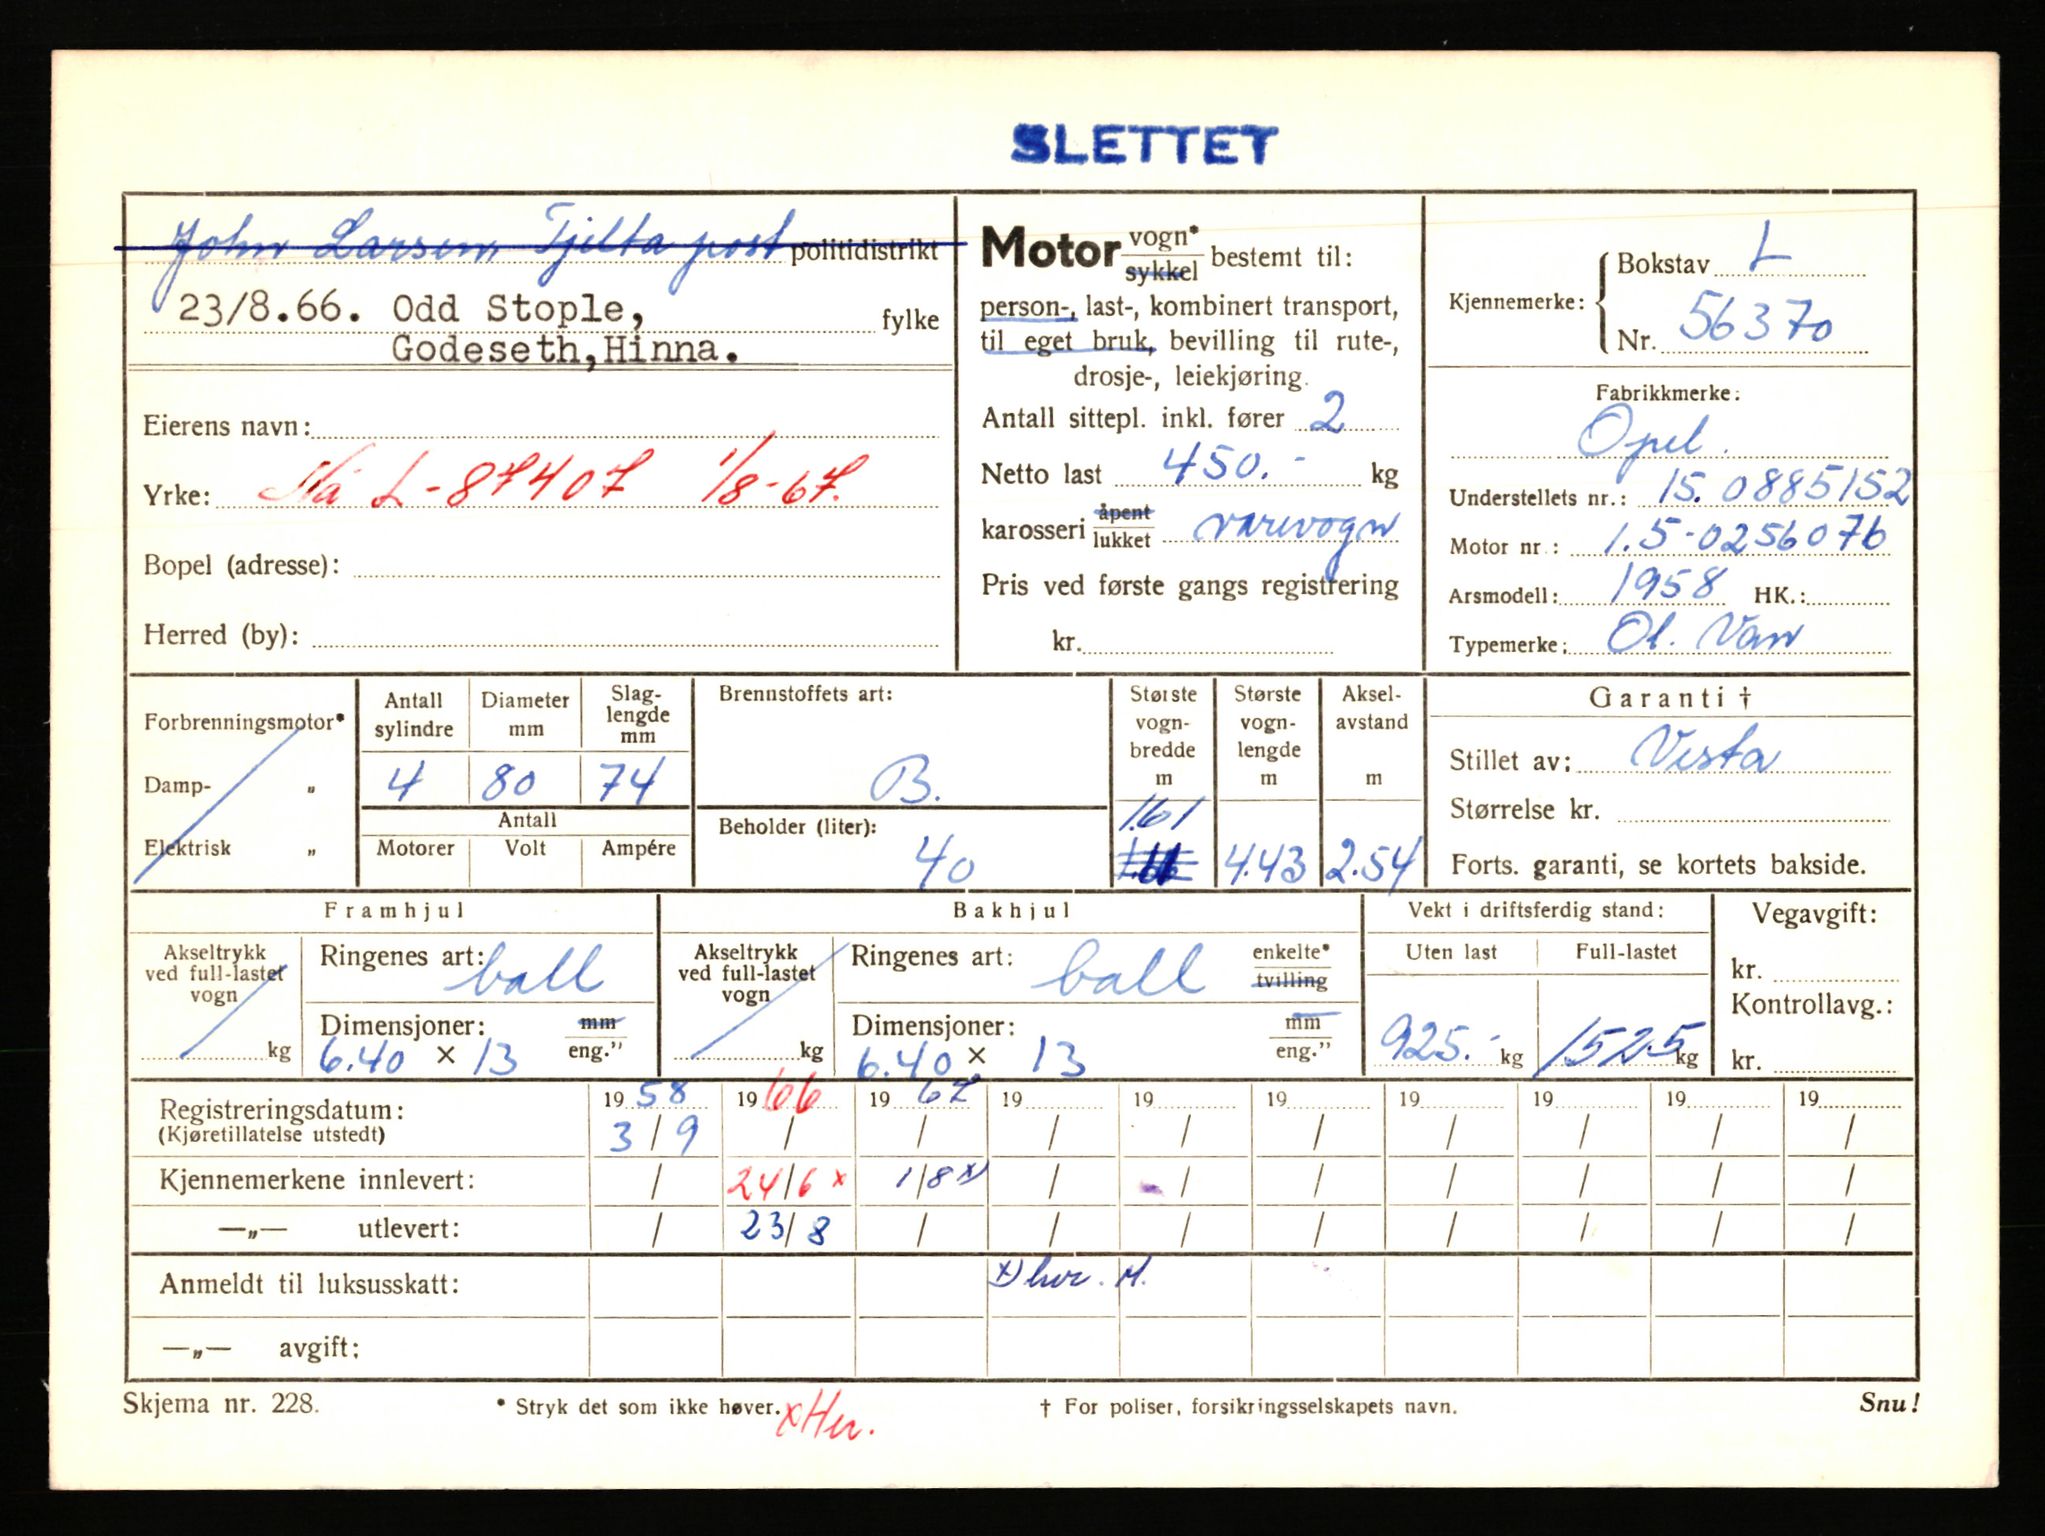 SLETTET
John Larsen, Tjelta post politidistrikt
23/8.66. Odd Stople, fylke
Godeseth, Hinna.
Eierens navn:
Yrke: Nå L-87407 1/8-67.
Bopel (adresse):
Herred (by):
Motor vogn* sykkel bestemt til:
person-, last-, kombinert transport,
til eget bruk, bevilling til rute-,
drosje-, leiekjøring.
Antall sittepl. inkl. fører 2
Netto last 450.- kg
karosseri åpent lukket varevogn
Pris ved første gangs registrering
kr.
Kjennemerke: Bokstav L
Nr. 56370
Fabrikkmerke:
Opel.
Understellets nr.: 15.0885152
Motor nr.: 1.5-0256076
Arsmodell: 1958 HK.:
Typemerke: Ol. Van
Forbrenningsmotor*
Damp- „
Elektrisk „
Antall sylindre Diameter mm Slag-lengde mm
4 80 74
Antall
Motorer Volt Ampére
Brennstoffets art:
B.
Beholder (liter):
40
Største vogn-bredde m Største vogn-lengde m Aksel-avstand m
1.61
4.43 2.54
Garanti †
Stillet av: Vesta
Størrelse kr.
Forts. garanti, se kortets bakside.
Framhjul
Akseltrykk ved full-lastet vogn
kg
Ringenes art: ball
Dimensjoner: mm eng."
6.40 × 13
Bakhjul
Akseltrykk ved full-lastet vogn
kg
Ringenes art: ball enkelte* tvilling
Dimensjoner: mm eng."
6.40 × 13
Vekt i driftsferdig stand:
Uten last Full-lastet
925.- kg 1525 kg
Vegavgift:
kr.
Kontrollavg.:
kr.
Registreringsdatum: 19 58 19 66 19 67 19 19 19 19 19 19 19
(Kjøretillatelse utstedt) 3/9 / / / / / / / / /
Kjennemerkene innlevert: / 24/6 x 1/8 x) / / / / / / /
—„— utlevert: / 23/8 / / / / / / / /
Anmeldt til luksusskatt: x) hvr. M.
—„— avgift:
Skjema nr. 228. * Stryk det som ikke høver. † For poliser, forsikringsselskapets navn. Snu!